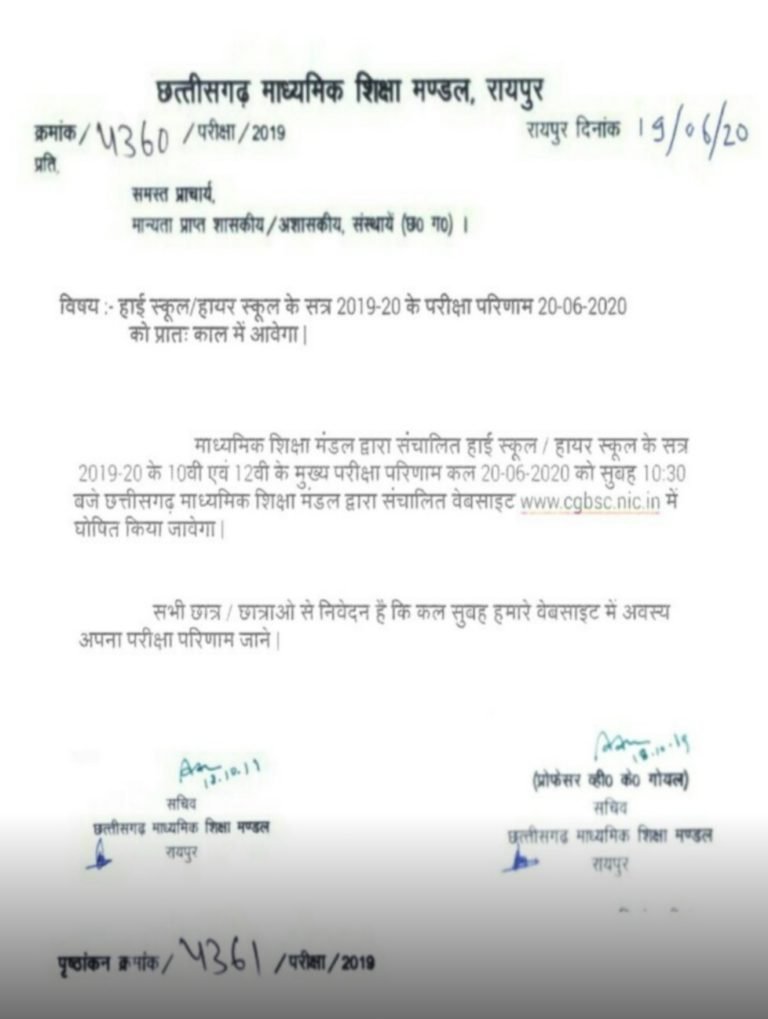 छत्तीसगढ़ माध्यमिक शिक्षा मण्डल, रायपुर
क्रमांक / 4360 / परीक्षा / 2019 रायपुर दिनांक 19/06/20
प्रति,
समस्त प्राचार्य,
मान्यता प्राप्त शासकीय / अशासकीय, संस्थायें (छ0 ग0) ।
विषय :- हाई स्कूल/हायर स्कूल के सत्र 2019-20 के परीक्षा परिणाम 20-06-2020
को प्रातः काल में आवेगा |
माध्यमिक शिक्षा मंडल द्वारा संचालित हाई स्कूल / हायर स्कूल के सत्र
2019-20 के 10वी एवं 12वी के मुख्य परीक्षा परिणाम कल 20-06-2020 को सुबह 10:30
बजे छत्तीसगढ़ माध्यमिक शिक्षा मंडल द्वारा संचालित वेबसाइट www.cgbsc.nic.in में
घोषित किया जावेगा |
सभी छात्र / छात्राओ से निवेदन है कि कल सुबह हमारे वेबसाइट में अवस्य
अपना परीक्षा परिणाम जाने |
18.10.19
(प्रोफेसर व्ही0 के0 गोयल)
सचिव
छत्तीसगढ़ माध्यमिक शिक्षा मण्डल
रायपुर
सचिव
छत्तीसगढ़ माध्यमिक शिक्षा मण्डल
रायपुर
पृष्ठांकन क्रमांक / 4361 / परीक्षा / 2019